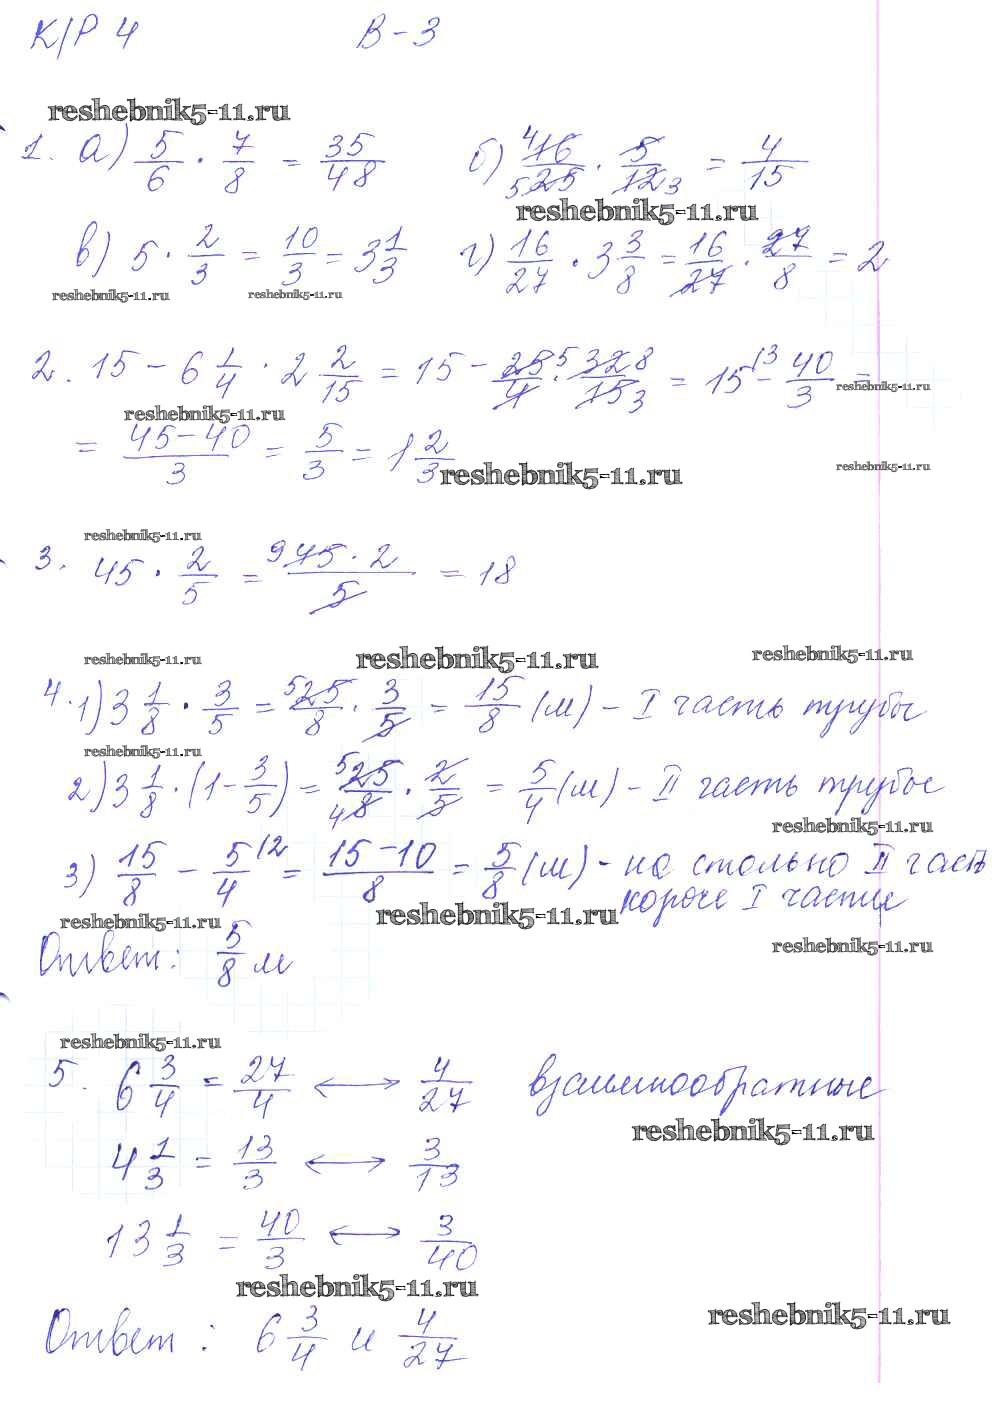 К/Р 4 В-3
reshebnik5-11.ru
1. а) 5/6 · 7/8 = 35/48 б) 4 16/5 25 · 5/12 3 = 4/15
reshebnik5-11.ru
в) 5 · 2/3 = 10/3 = 3 1/3 г) 16/27 · 3 3/8 = 16/27 · 27/8 = 2
reshebnik5-11.ru reshebnik5-11.ru
2. 15 - 6 1/4 · 2 2/15 = 15 - 25 5/4 · 32 8/15 3 = 15 \3 - 40/3 =
reshebnik5-11.ru reshebnik5-11.ru
= 45-40/3 = 5/3 = 1 2/3
reshebnik5-11.ru reshebnik5-11.ru
reshebnik5-11.ru
3. 45 · 2/5 = 9 45 · 2/5 = 18
reshebnik5-11.ru reshebnik5-11.ru reshebnik5-11.ru
4. 1) 3 1/8 · 3/5 = 5 25/8 · 3/5 = 15/8 (м) - I часть трубы
reshebnik5-11.ru
2) 3 1/8 · (1 - 3/5) = 5 25/4 8 · 2/5 = 5/4 (м) - II часть трубы
reshebnik5-11.ru
3) 15/8 - 5/4 \2 = 15-10/8 = 5/8 (м) - на столько II часть
короче I части
reshebnik5-11.ru reshebnik5-11.ru
Ответ: 5/8 м
reshebnik5-11.ru
reshebnik5-11.ru
5. 6 3/4 = 27/4 ↔ 4/27 взаимнообратные
reshebnik5-11.ru
4 1/3 = 13/3 ↔ 3/13
13 1/3 = 40/3 ↔ 3/40
reshebnik5-11.ru
reshebnik5-11.ru
Ответ: 6 3/4 и 4/27